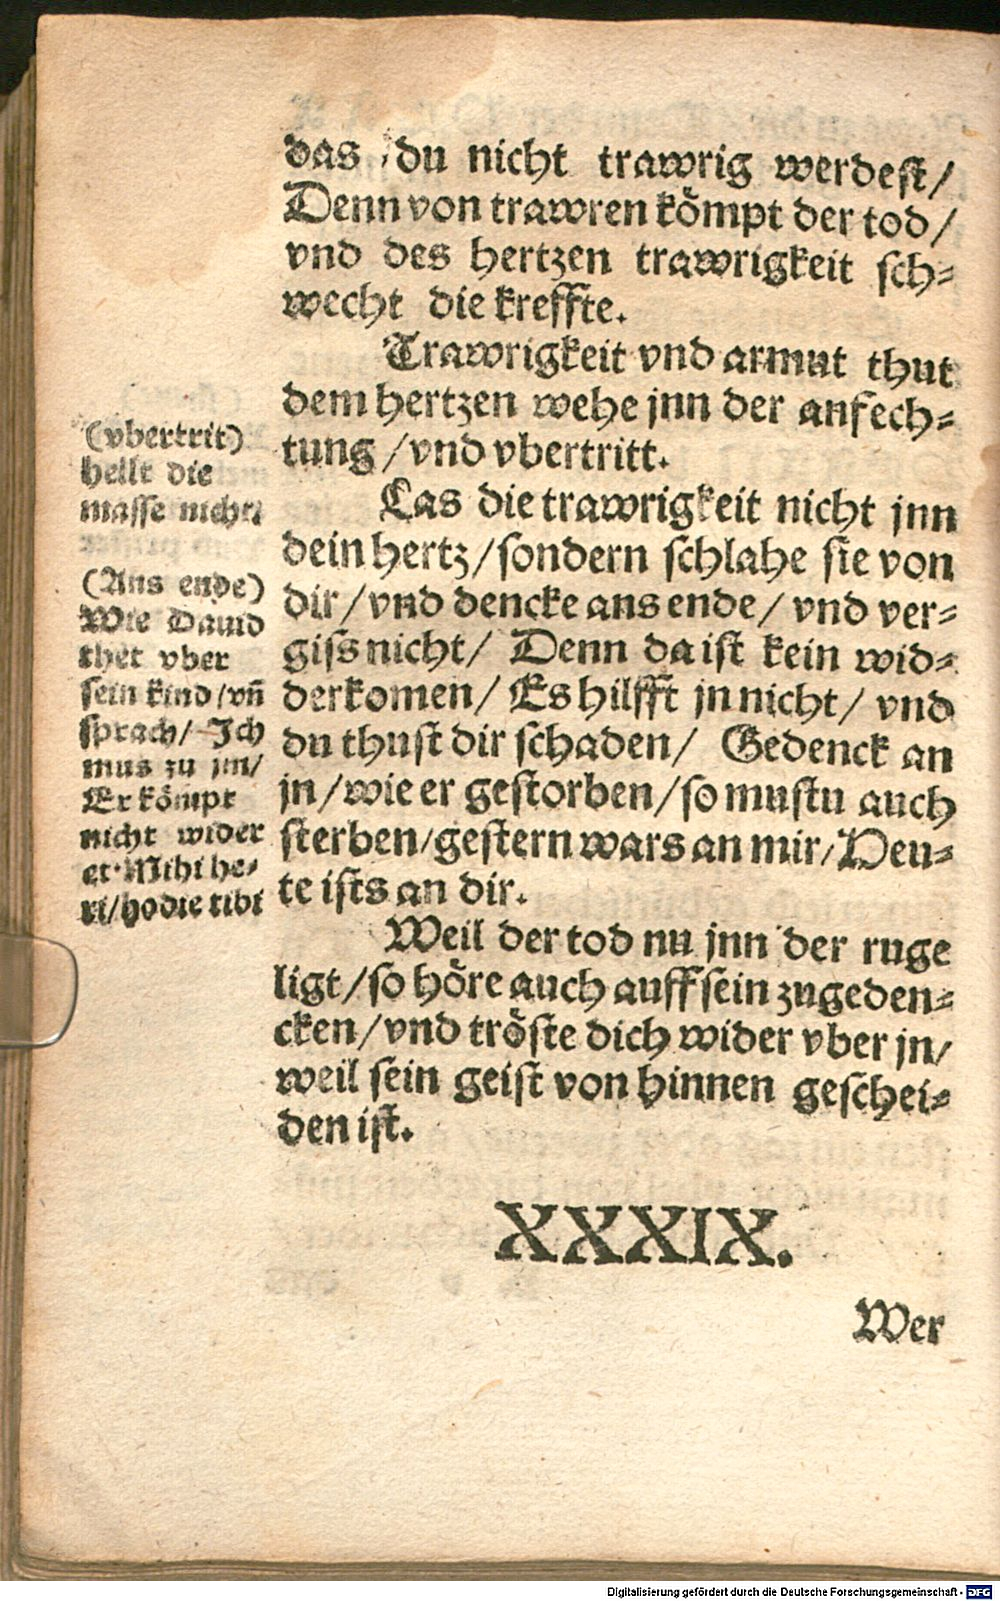 das du nicht trawrig werdest/
Denn von trawren kömpt der tod/
vnd des hertzen trawrigkeit sch=
wecht die kreffte.
Trawrigkeit vnd armut thut
dem hertzen wehe jnn der anfech=
tung/vnd vbertritt.
Las die trawrigkeit nicht jnn
dein hertz/sondern schlahe sie von
dir/vnd dencke ans ende/vnd ver=
giss nicht/ Denn da ist kein wid=
derkomen/Es hilfft jn nicht/vnd
du thust dir schaden/ Gedenck an
jn/wie er gestorben/so mustu auch
sterben/gestern wars an mir/Heu=
te ists an dir.
Weil der tod nu jnn der ruge
ligt/so höre auch auff sein zugeden=
cken/vnd tröste dich wider vber jn/
weil sein geist von hinnen geschei=
den ist.
(vbertrit)
hellt die
masse nicht.
(Ans ende)
Wie Dauid
thet vber
sein kind/vñ
sprach/ Ich
mus zu jm/
Er kömpt
nicht wider
et. Mihi he=
ri/hodie tibi
XXXIX.
Wer
Digitalisierung gefördert durch die Deutsche Forschungsgemeinschaft - DFG